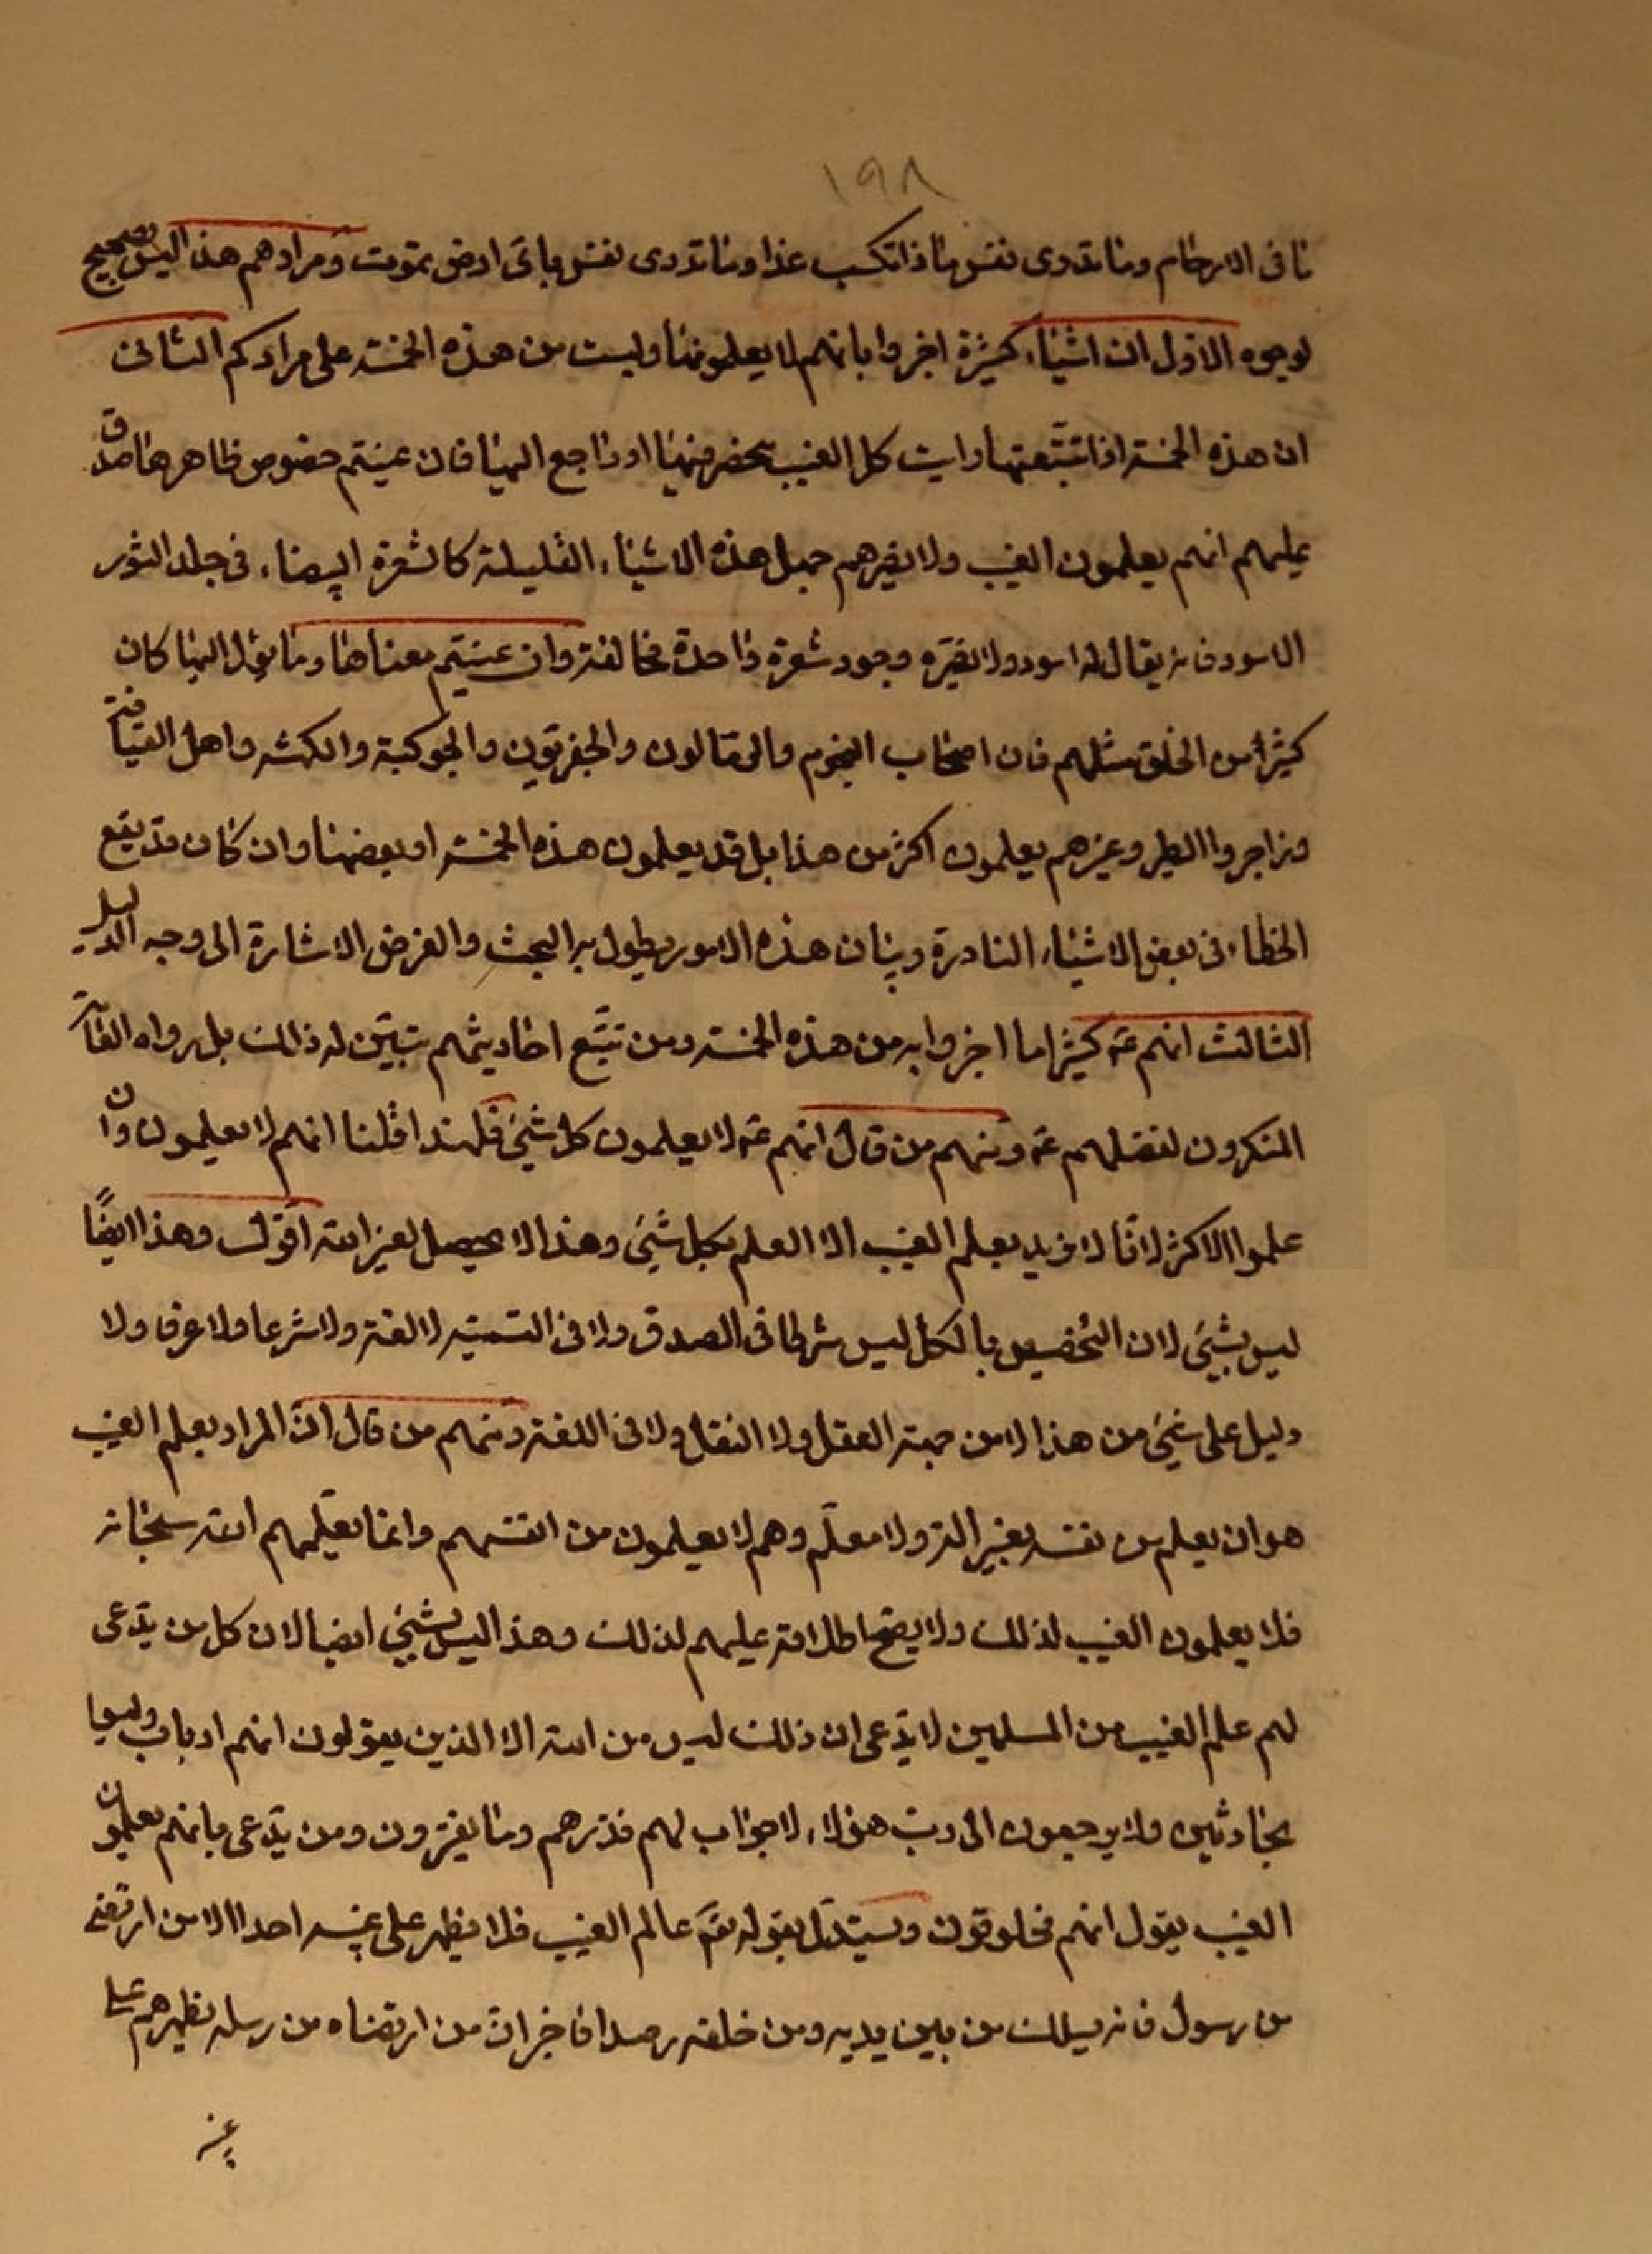 ١٩٨
ما فى الارحام وما تدرى نفس ماذا تكسب غدا وما تدرى نفس باىّ ارض تموت ومرادهم هذا ليس بصحيح
لوجوه الاول ان اشياء كثيرة اخبروا بانهم لا يعلمونها وليست من هذه الخمسة على مرادكم الثانى
ان هذه الخمسة اذا تتبّعتها رايت كل الغيب منها او راجع اليها فان عنيتم خصوص ظاهرها صدق
عليهم انهم يعلمون الغيب ولا يضرهم جهل هذه الاشياء القليلة كالشعرة البيضاء فى جلد الثور
الاسود فانه يقال له اسود ولا يغيّره وجود شعرة واحدة مخالفة وان عنيتم معناها وما يؤل اليها كان
كثيرا من الخلق مثلهم فان اصحاب النجوم والرمّالون والجفريون والجوكية والكهنة واهل القيافة
وزاجروا الطير وغيرهم يعلمون اكثر من هذا بل قد يعلمون هذه الخمسة او بعضها وان كان قد يقع
الخطاء فى بعض الاشياء النادرة وبيان هذه الامور يطول به البحث والغرض الاشارة الى وجه الدليل
الثالث انهم عۤ كثيرا ما اخبروا به من هذه الخمسة ومن تتبّع احاديثهم تبيّن له ذلك بل رواه العامّة
المنكرون لفضلهم عۤ ومنهم من قال انهم عۤ لا يعلمون كل شئ فلهذا قلنا انهم لا يعلمون وان
علموا الاكثر لانّا لا نريد بعلم الغيب الا العلم بكل شئ وهذا لا يحصل لغير الله اقول وهذا ايضًا
ليس بشئ لان التخصيص بالكل ليس شرطا فى الصدق ولا فى التسمية لا لغة ولا شرعا ولا عرفا ولا
دليل على شئ من هذا لا من جهة العقل ولا النقل ولا فى اللغة ومنهم من قال انّ المراد بعلم الغيب
هو ان يعلم من نفسه بغير الة ولا معلّم وهم لا يعلمون من انفسهم وانما يعلّمهم الله سبحانه
فلا يعلمون الغيب لذلك ولا يصح اطلاقه عليهم لذلك وهذا ليس بشئ ايضا لان كل من يدّعى
لهم علم الغيب من المسلمين لا يدّعى ان ذلك ليس من الله الا الذين يقولون انهم ارباب وليسوا
بحادثين ولا يرجعون الى ربّ هؤلاء لا جواب لهم فذرهم وما يفترون ومن يدّعى بانهم يعلمون
الغيب يقول انهم مخلوقون ويستدّل بقوله تعۤ عالم الغيب فلا يظهر على غيبه احدا الا من ارتضى
من رسول فانه يسلك من بين يديه ومن خلفه رصدا فاخبر ان من ارتضاه من رسله يظهرهم على
غيبه